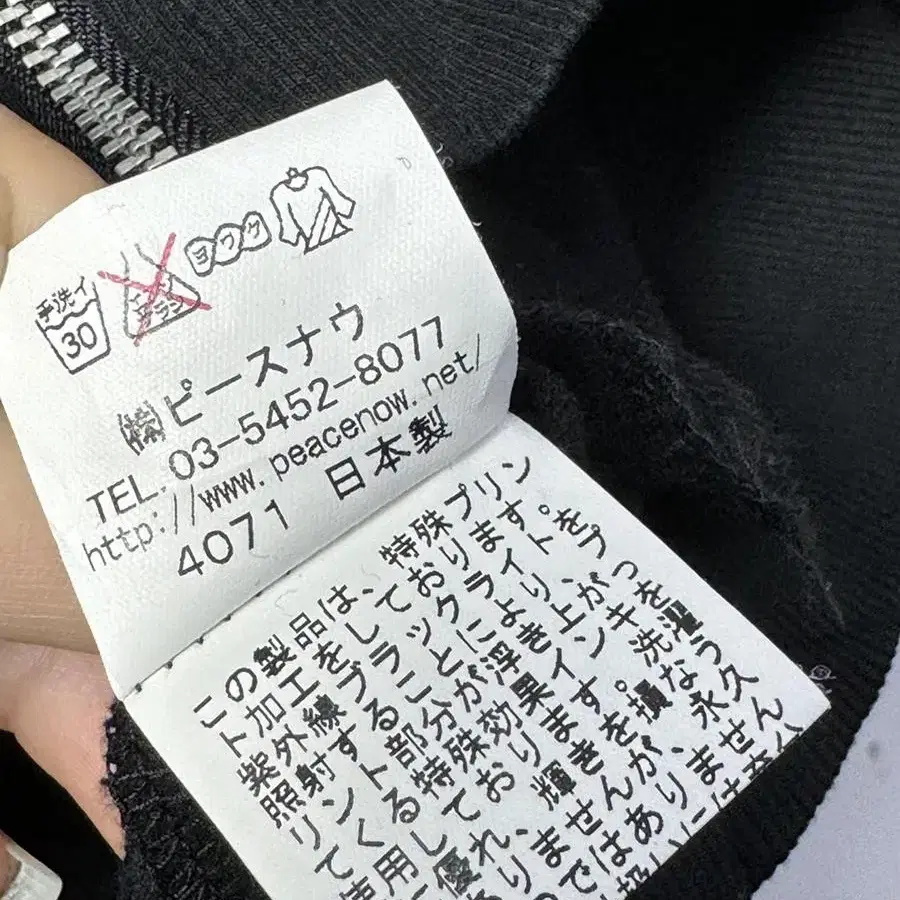 手洗イ
30
エンソ
サラシ
ヨワク
㈱ピースナウ
TEL.03-5452-8077
http://www.peacenow.net/
4071 日本製
この製品は、特殊プリン
ト加工をしております。
紫外線ブラックライトを
照射することにより、プ
リント部分が浮き上がっ
てくる特殊効果インキを
使用しております。洗濯
に優れ、輝きを損なう
ありませんが、永久
のではありません
扱いには